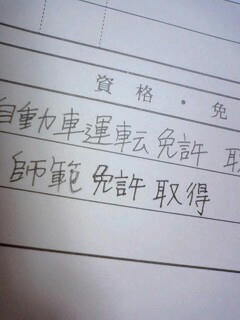 資格・免
自動車運転免許 取
師範免許取得